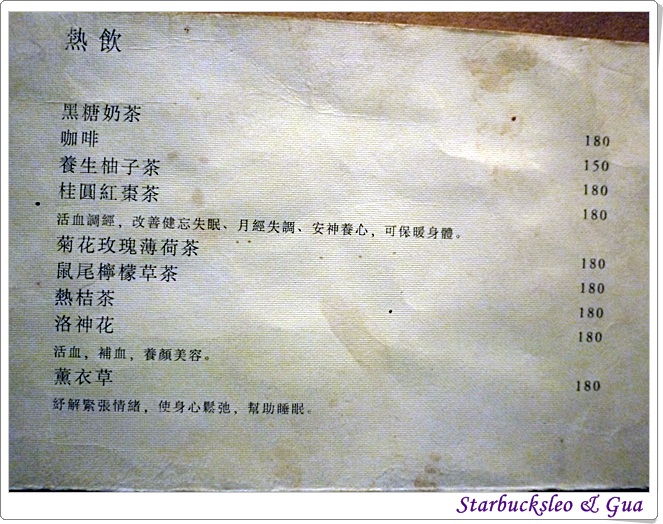 熱飲
黑糖奶茶 180
咖啡 150
養生柚子茶 180
桂圓紅棗茶 180
活血調經，改善健忘失眠、月經失調、安神養心，可保暖身體。
菊花玫瑰薄荷茶 180
鼠尾檸檬草茶 180
熱桔茶 180
洛神花 180
活血，補血，養顏美容。
薰衣草 180
紓解緊張情緒，使身心鬆弛，幫助睡眠。
Starbucksleo & Gua